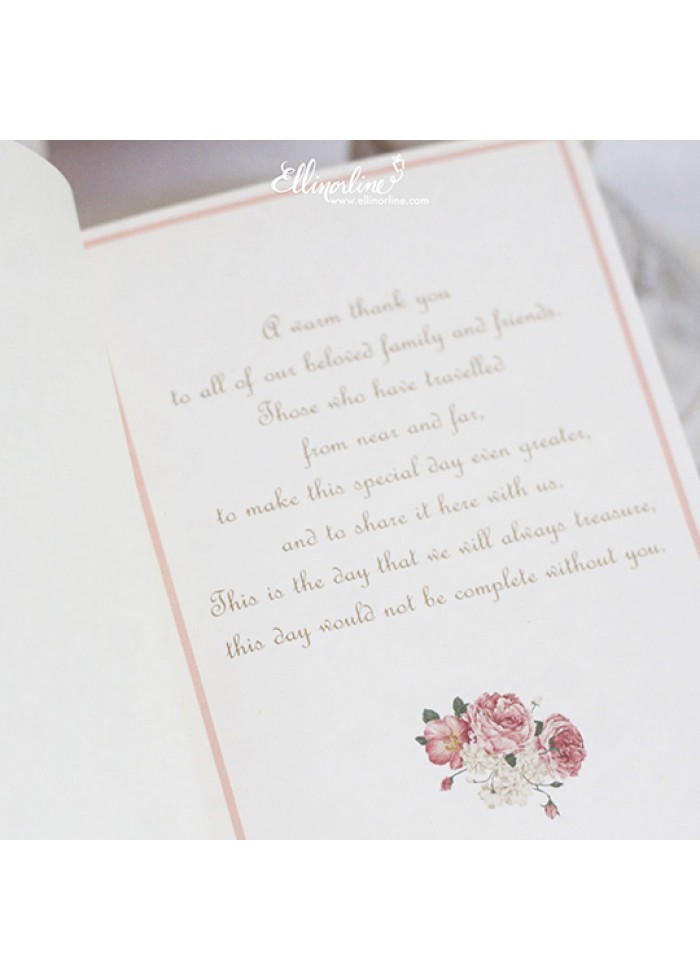 Ellinorline
www.ellinorline.com
A warm thank you
to all of our beloved family and friends.
Those who have travelled
from near and far,
to make this special day even greater,
and to share it here with us.
This is the day that we will always treasure,
this day would not be complete without you.